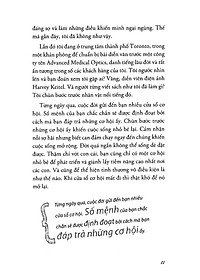 đáng sợ và làm những điều khiến mình ngại ngùng. Thế
mà gần đây, tôi đã không như vậy.
Lần đó tôi đang ở trung tâm thành phố Toronto, trong
một khán phòng để chuẩn bị bài diễn văn trước một công
ty tên Advanced Medical Optics, danh tiếng lâu đời và rất
ấn tượng trong số các khách hàng của tôi. Tôi ngước nhìn
lên và bạn đoán xem tôi gặp ai? Vâng, diễn viên điện ảnh
Harvey Keitel. Và người từng viết sách như tôi đã làm gì?
Tôi chùn bước trước nhân vật nổi tiếng đó.
Từng ngày qua, cuộc đời gửi đến bạn nhiều cửa sổ cơ
hội. Số mệnh của bạn chắc chắn sẽ được định đoạt bởi
cách mà bạn đáp trả những cơ hội ấy. Chùn bước trước
những cơ hội ấy khiến cuộc sống nhỏ bé lại. Cảm nhận
nỗi sợ hãi nhưng biết can đảm chạy xuyên qua nó sẽ khiến
cuộc sống mở rộng hơn. Đó là một cuộc trao đổi đơn
giản. Thậm chí với trẻ con, bạn cũng chỉ có những cơ hội
nhỏ bé để phát triển và giành lấy tiềm năng cao nhất bên
trong chúng. Và cũng để thể hiện tình thương vô điều kiện
là như thế nào. Khi cửa sổ cơ hội mất đi thì thật khó để nó
mở lại.
Từng ngày qua, cuộc đời gửi đến bạn nhiều
cửa sổ cơ hội. Số mệnh của bạn chắc
chắn sẽ được định đoạt bởi cách mà bạn
đáp trả những cơ hội ấy.
41